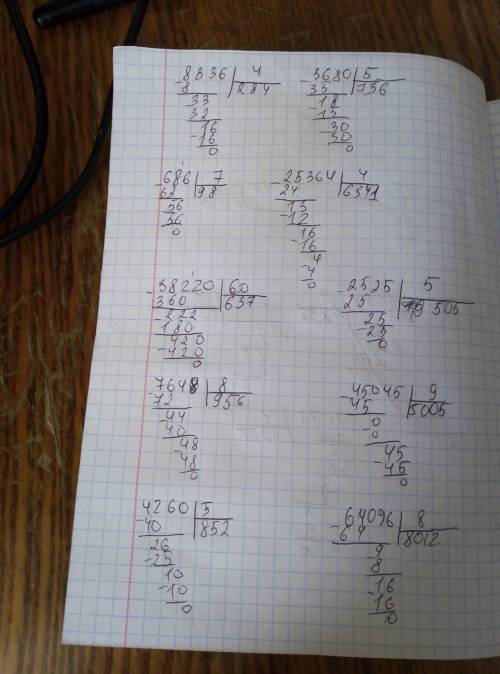 8836 | 4
-8 | 284
-33
32
16
-16
0
-3680 | 5
35 | 736
-18
-15
30
30
0
-686 | 7
63 | 98
56
56
0
-25364 | 4
24 | 6341
13
-12
16
-16
4
-4
0
-38220 | 60
360 | 637
-222
180
420
-420
0
-2525 | 5
25 | 505
25
-25
0
-7648 | 8
72 | 956
44
40
-48
48
0
-45045 | 9
-45 | 5005
0
-0
45
-45
0
4260 | 5
-40 | 852
26
-25
10
-10
0
-64096 | 8
64 | 8012
9
8
16
-16
0